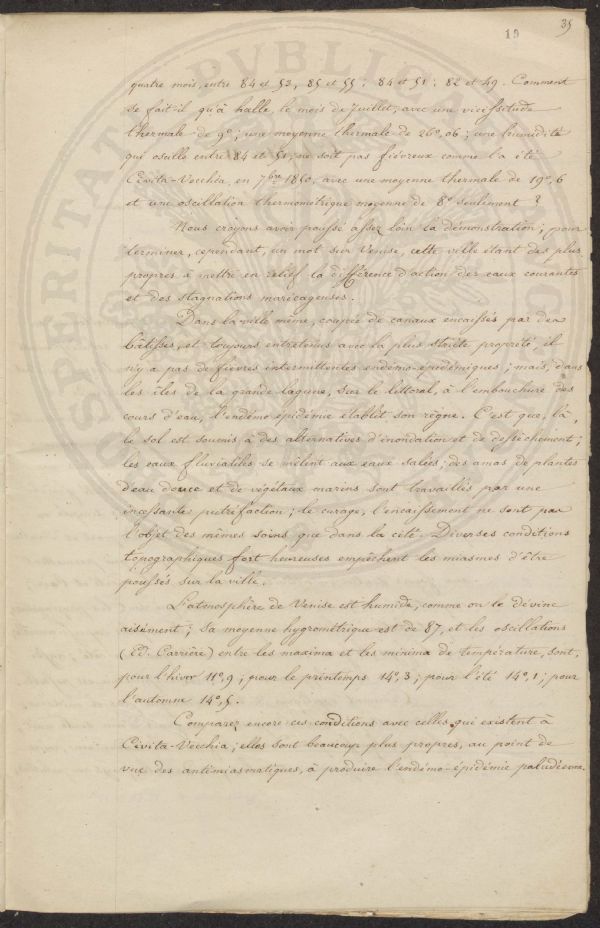 19
35
quatre mois, entre 84 et 53, 85 et 55 : 84 et 51 : 82 et 49. Comment
se fait-il qu'à halle, le mois de Juillet, avec une vicissitude
thermale de 9° ; une moyenne thermale de 26°,06 ; une humidité
qui oscille entre 84 et 51, ne soit pas fiévreux comme l'a été
Civita-Vecchia, en 7bre 1860, avec une moyenne thermale de 19°,6
et une oscillation thermométrique moyenne de 8° seulement ?
Nous croyons avoir poussé assez loin la démonstration ; pour
terminer, cependant, un mot sur Venise, cette ville étant des plus
propres à mettre en relief la différence d'action des eaux courantes
et des stagnations marécageuses.
Dans la ville même, coupée de canaux encaissés par des
bâtisses, et toujours entretenus avec la plus stricte propreté, il
n'y a pas de fièvres intermittentes endémo-épidémiques ; mais, dans
les îles de la grande lagune, sur le littoral, à l'embouchure des
cours d'eau, l'endémo épidémie établit son règne. C'est que, là,
le sol est soumis à des alternatives d'inondation et de dessèchement ;
les eaux fluviatiles se mêlent aux eaux salées ; des amas de plantes
d'eau douce et de végétaux marins sont travaillés par une
incessante putréfaction ; le curage, l'encaissement ne sont pas
l'objet des mêmes soins que dans la cité. Diverses conditions
topographiques fort heureuses empêchent les miasmes d'être
poussés sur la ville.
L'atmosphère de Venise est humide, comme on le dévine
aisément ; sa moyenne hygrométrique est de 87, et les oscillations
(Ed. Carrière) entre les maxima et les minima de température, sont,
pour l'hiver 11°,9 ; pour le printemps 14°,3 ; pour l'été 14°,1 ; pour
l'automne 14°,5.
Comparez encore ces conditions avec celles qui existent à
Civita-Vecchia ; elles sont beaucoup plus propres, au point de
vue des antimiasmatiques, à produire l'endémo-épidémie paludéenne.